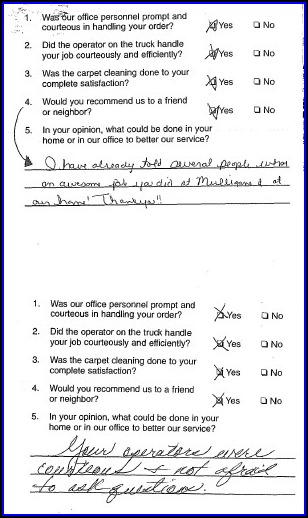 1. Was our office personnel prompt and
courteous in handling your order? Yes No
2. Did the operator on the truck handle
your job courteously and efficiently? Yes No
3. Was the carpet cleaning done to your
complete satisfaction? Yes No
4. Would you recommend us to a friend
or neighbor? Yes No
5. In your opinion, what could be done in your
home or in our office to better our service?
I have already told several people what
an awesome job you did at Mulligans & at
our home! Thankyou!!
1. Was our office personnel prompt and
courteous in handling your order? Yes No
2. Did the operator on the truck handle
your job courteously and efficiently? Yes No
3. Was the carpet cleaning done to your
complete satisfaction? Yes No
4. Would you recommend us to a friend
or neighbor? Yes No
5. In your opinion, what could be done in your
home or in our office to better our service?
Your operators were
courteous & not afraid
to ask questions.